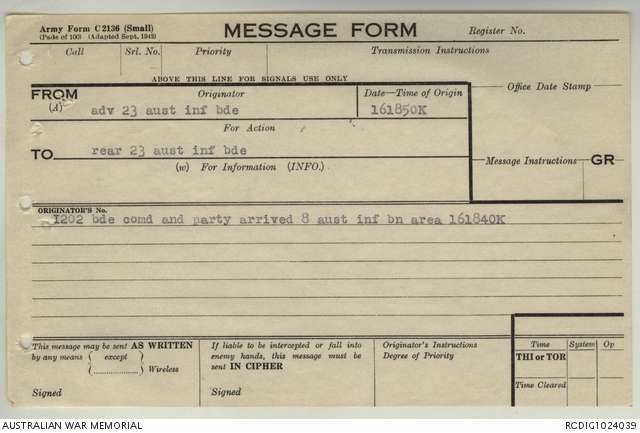 Army Form C2136 (Small)
(Pads of 100) (Adapted Sept. 1943)
MESSAGE FORM
Register No.
Call Srl. No. Priority Transmission Instructions
ABOVE THIS LINE FOR SIGNALS USE ONLY
FROM Originator Date—Time of Origin Office Date Stamp
(A) adv 23 aust inf bde 161850K
For Action
TO rear 23 aust inf bde
(w) For Information (INFO.) Message Instructions GR
ORIGINATOR'S No.
I202 bde comd and party arrived 8 aust inf bn area 161840K
This message may be sent AS WRITTEN
by any means { except } Wireless
Signed
If liable to be intercepted or fall into
enemy hands, this message must be
sent IN CIPHER
Signed
Originator's Instructions
Degree of Priority
Time System Op.
THI or TOR
Time Cleared
AUSTRALIAN WAR MEMORIAL RCDIG1024039